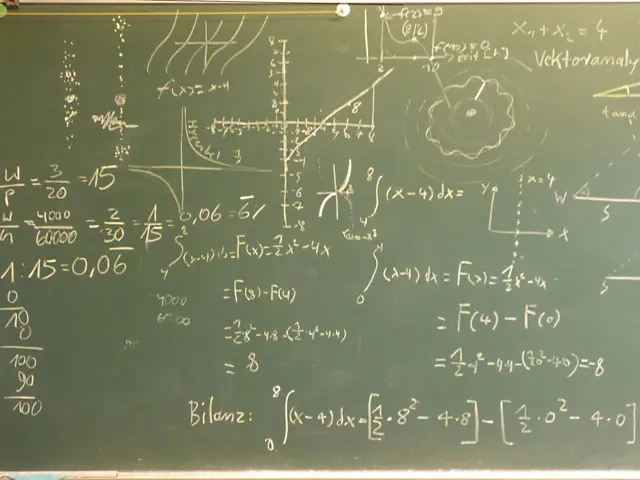 x₁ + x₂ = 4
Vektoranaly
f(x) = x-4
Hyperbel
W/P = 3/20 = 15
= 4000/60000 = 2/30 = 1/15 = 0,06 = 6%
1 : 15 = 0,06
0
10
0
100
90
100
∫ (x-4) dx =
8
4
y
x = 4
x
W
S
S
∫ (x-4) dx = F(x) = 1/2 x² - 4x
= F(8) - F(4)
= 1/2 8² - 4·8 - (1/2 · 4² - 4·4)
= 8
4000
4
0
∫ (x-4) dx = F(x) = 1/2 x² - 4x
= F(4) - F(0)
= 1/2 · 4² - 4·4 - (1/2 0² - 4·0) = -8
Bilanz: ∫₀⁸ (x-4) dx = [1/2 · 8² - 4·8] - [1/2 · 0² - 4·0]